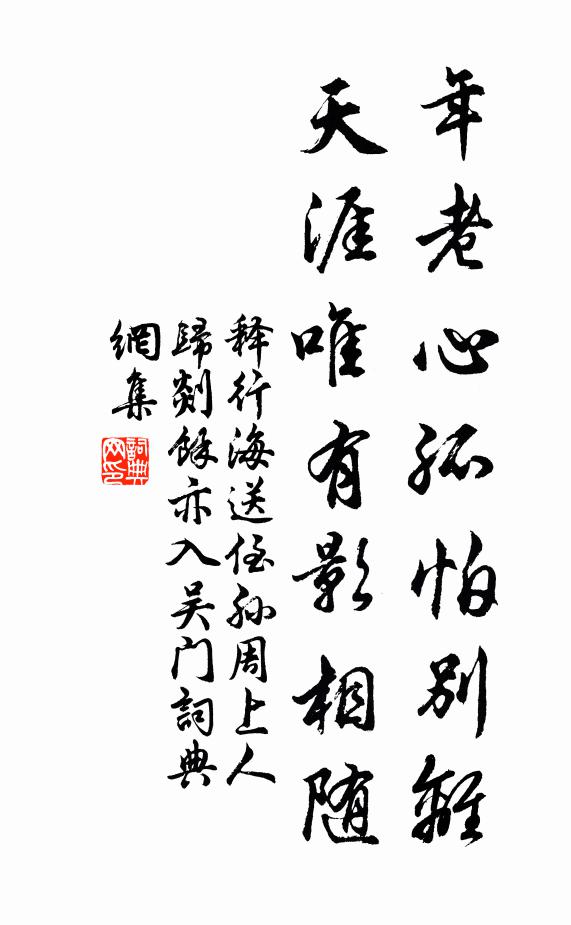 年老心孤怕別離
天涯唯有影相随
释行海送侄孙周上人
歸剡餘亦入吴门詞典
網集
詞典網印